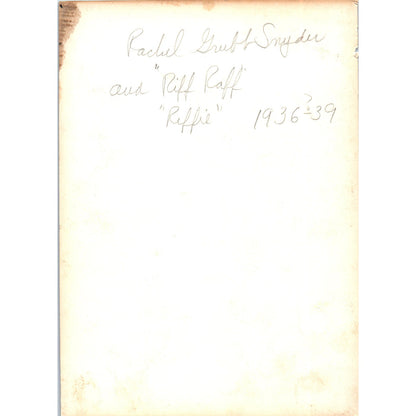 Rachel Grubb Snyder
and "Riff Raff"
"Riffie" 1936?-39